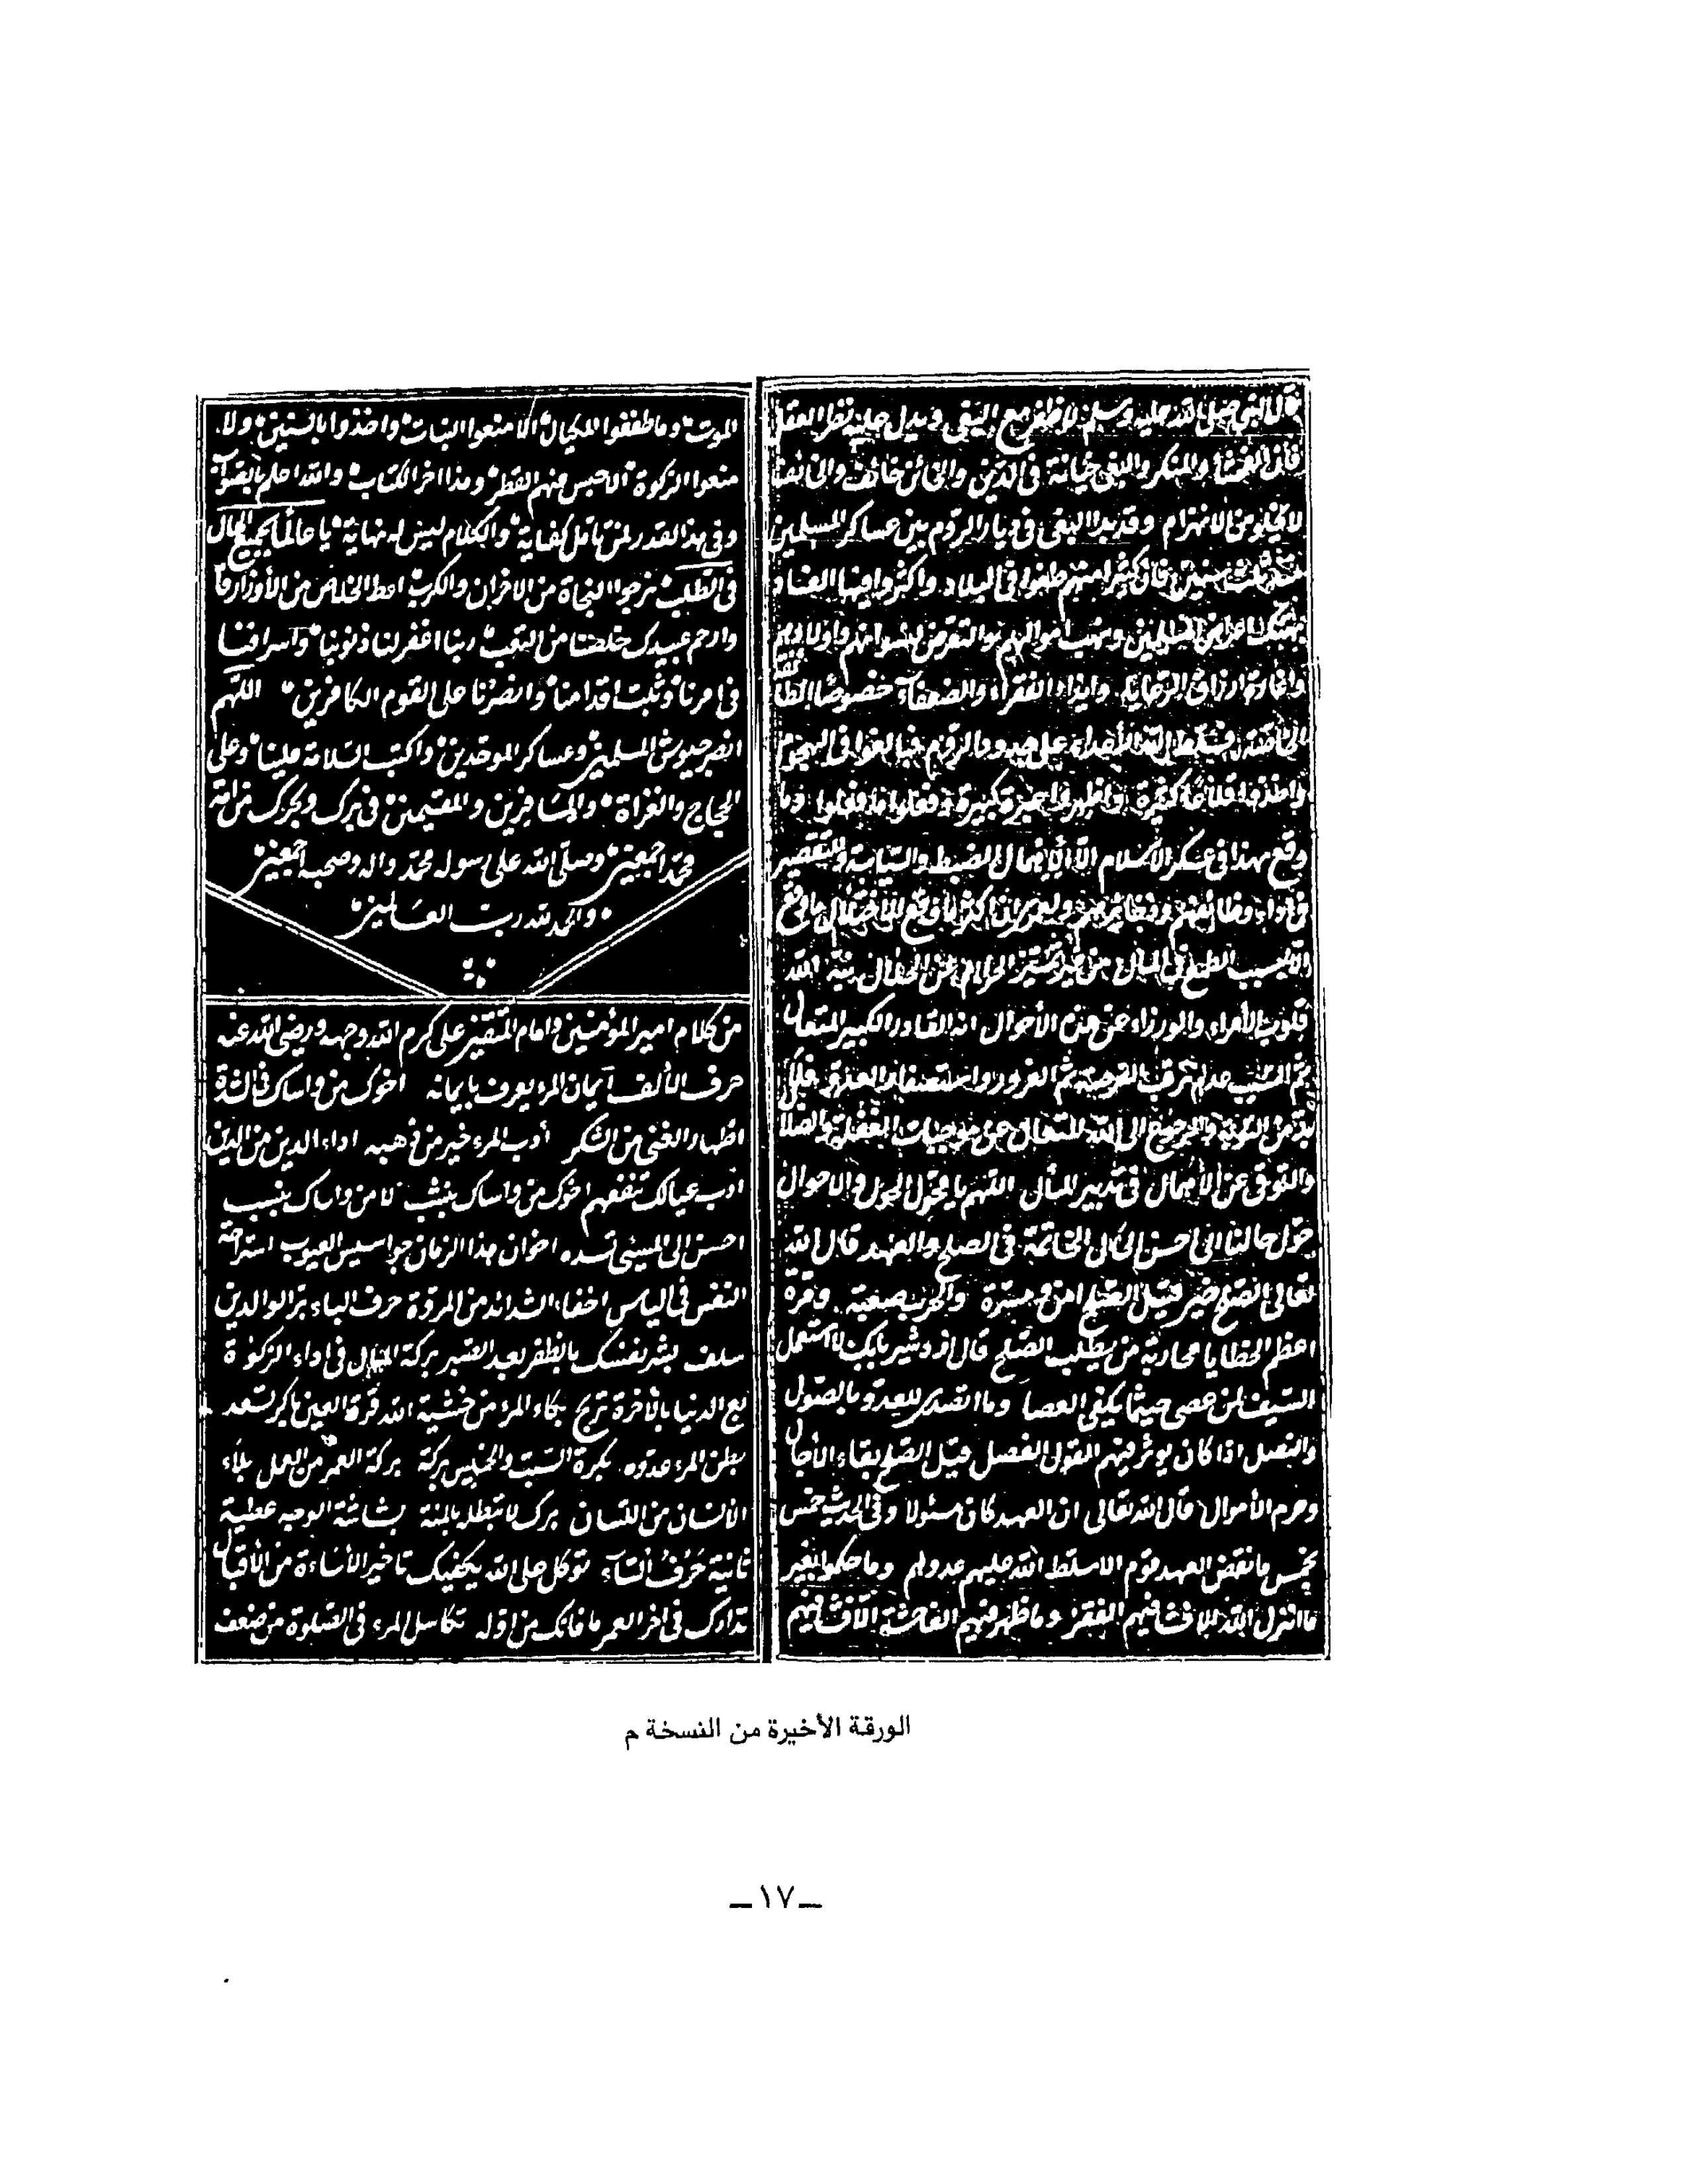 قال النبي صلى الله عليه وسلم لا ظفر مع البغي ويدل عليه نظر العقل
فان الفحشاء والمنكر والبغي خيانة في الدين والخائن خائف والخائف
لا يخلو من الانهزام وقد بدا البغي في ديار الروم بين عساكر المسلمين
سنين فان كثيرا منهم طغوا في البلاد واكثروا فيها الفساد
المسلمين ونهب اموالهم والتعرض لنسوانهم واولادهم
وغارة ارزاق الرعايا وايذاء الفقراء والضعفاء خصوصا
فسلط الله الأعداء على حدود الروم فبالغوا في الهجوم
واخذوا قلاعا كثيرة كبيرة وفعلوا ما فعلوا وما
وقع هذا في عسكر الاسلام الا لاهمال الضبط والسياسة والتقصير
في اداء وظائفهم ولعمري ان اكثر ما وقع
بسبب الطمع في المال من غير تمييز الحرام عن الحلال نبه الله
قلوب الأمراء والوزراء عن هذه الأحوال انه القادر الكبير المتعال
ثم السبب عدم ترقب الفرصة ثم الغرور واستضعاف العدو
بد من التوبة والرجوع الى الله المتعال عن موجبات الغفلة
والتوقي عن الأهمال في تدبير المآل اللهم يا محول الحول والاحوال
حول حالنا الى احسن الحال الخاتمة في الصلح والعهد قال الله
تعالى الصلح خير قيل الصلح امن ومسرة والحرب صعبة ومرة
اعظم الخطايا محاربة من يطلب الصلح قال اردشير بابك لا استعمل
السيف لمن عصى حيثما يكفي العصا وما اتصدى للعدو بالصول
والنصل اذا كان يوثر فيهم القول الفصل قيل الصلح بقاء الأجال
وحرم الأموال قال الله تعالى ان العهد كان مسئولا وفي الحديث خمس
بخمس ما نقض العهد قوم الا سلط الله عليهم عدوهم وما حكموا بغير
ما انزل الله الا فشا فيهم الفقر وما ظهر فيهم الفاحشة الا فشا فيهم
الموت وما طففوا المكيال الا منعوا النبات واخذوا بالسنين ولا
منعوا الزكوة الا حبس منهم القطر وهذا اخر الكتاب والله اعلم بالصواب
وفي هذا القدر لمن تأمل كفاية والكلام ليس له نهاية يا عالما بجميع الحال
في الطلب نرجو النجاة من الاحزان والكرب اعط الخلاص من الأوزار
وارحم عبيدك خلصنا من التعب ربنا اغفر لنا ذنوبنا واسرافنا
في امرنا وثبت اقدامنا وانصرنا على القوم الكافرين اللهم
انصر جيوش المسلمين وعساكر الموحدين واكتب السلامة علينا وعلى
الحجاج والغزاة والمسافرين والمقيمين في برك وبحرك من امة
محمد اجمعين وصلى الله على رسوله محمد واله وصحبه اجمعين
والحمد لله رب العالمين
من كلام امير المؤمنين وامام المتقين علي كرم الله وجهه ورضى الله عنه
حرف الألف ايمان المرء يعرف بايمانه اخوك من واساك في الشدة
اظهار الغنى من الشكر أدب المرء خير من ذهبه اداء الدين من الدين
أدب عيالك تنفعهم اخوك من واساك بنشب لا من واساك بنسب
احسن الى المسيئ تسده اخوان هذا الزمان جواسيس العيوب استراحة
النفس في الياس اخفاء الشدائد من المروة حرف الباء بر الوالدين
سلف بشر نفسك بالظفر بعد الصبر بركة المال في اداء الزكوة
بع الدنيا بالآخرة تربح بكاء المرء من خشية الله قرة العين باكر تسعد
بطن المرء عدوه بكرة السبت والخميس بركة بركة العمر من العمل بلاء
الانسان من اللسان برك لا تبطله بالمنة بشاشة الوجه عطية
ثانية حرف التاء توكل على الله يكفيك تاخير الأساءة من الأقبال
تدارك في اخر العمر ما فاتك من اوله تكاسل المرء في الصلوة من ضعف
الورقة الأخيرة من النسخة م
ـ ١٧ ـ